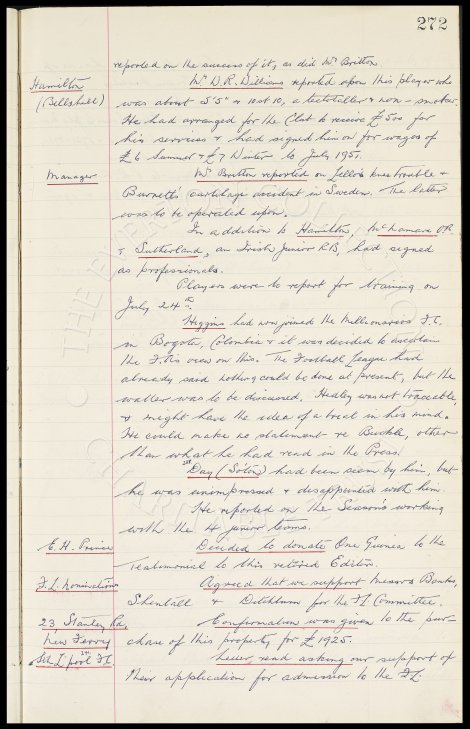 272
reported on the success of it, as did Mr Britton.
Hamilton
(Bellshill)
Mr D.R. Williams reported upon this player who
was about 5'5" & 10st 10, a teetotaller & non-smoker.
He had arranged for the Club to receive £500 for
his services & had signed him on for wages of
£6 Summer & £7 Winter to July 1951.
Manager
Mr Britton reported on Jello's knee trouble &
Burnett's cartilage accident in Sweden. The latter
was to be operated upon.
In addition to Hamilton, McNamara O.R.
& Sutherland, an Irish Junior R.B, had signed
as professionals.
Players were to report for training on
July 24th.
Higgins had now joined the Millionarios F.C.
in Bogota, Colombia & it was decided to ascertain
the F.A's view on this. The Football League had
already said nothing could be done at present, but the
matter was to be discussed. Healey was not traceable,
& might have the idea of a break in his mind.
He could make no statement re Buckle, other
than what he had read in the Press.
Day (Soton) had been seen by him, but
he was unimpressed & disappointed with him.
He reported on the Season's working
with the 4 junior teams.
E. H. Prince
Decided to donate One Guinea to the
Testimonial to this retired Editor.
F.L. Nominations
Agreed that we support Messrs Banks,
Shentall & Ditchburn for the FL Committee.
23 Stanley Rd,
New Ferry
Confirmation was given to the pur-
chase of this property for £1925.
Sth L'pool F.C.
Letter read asking our support of
their application for admission to the F.L